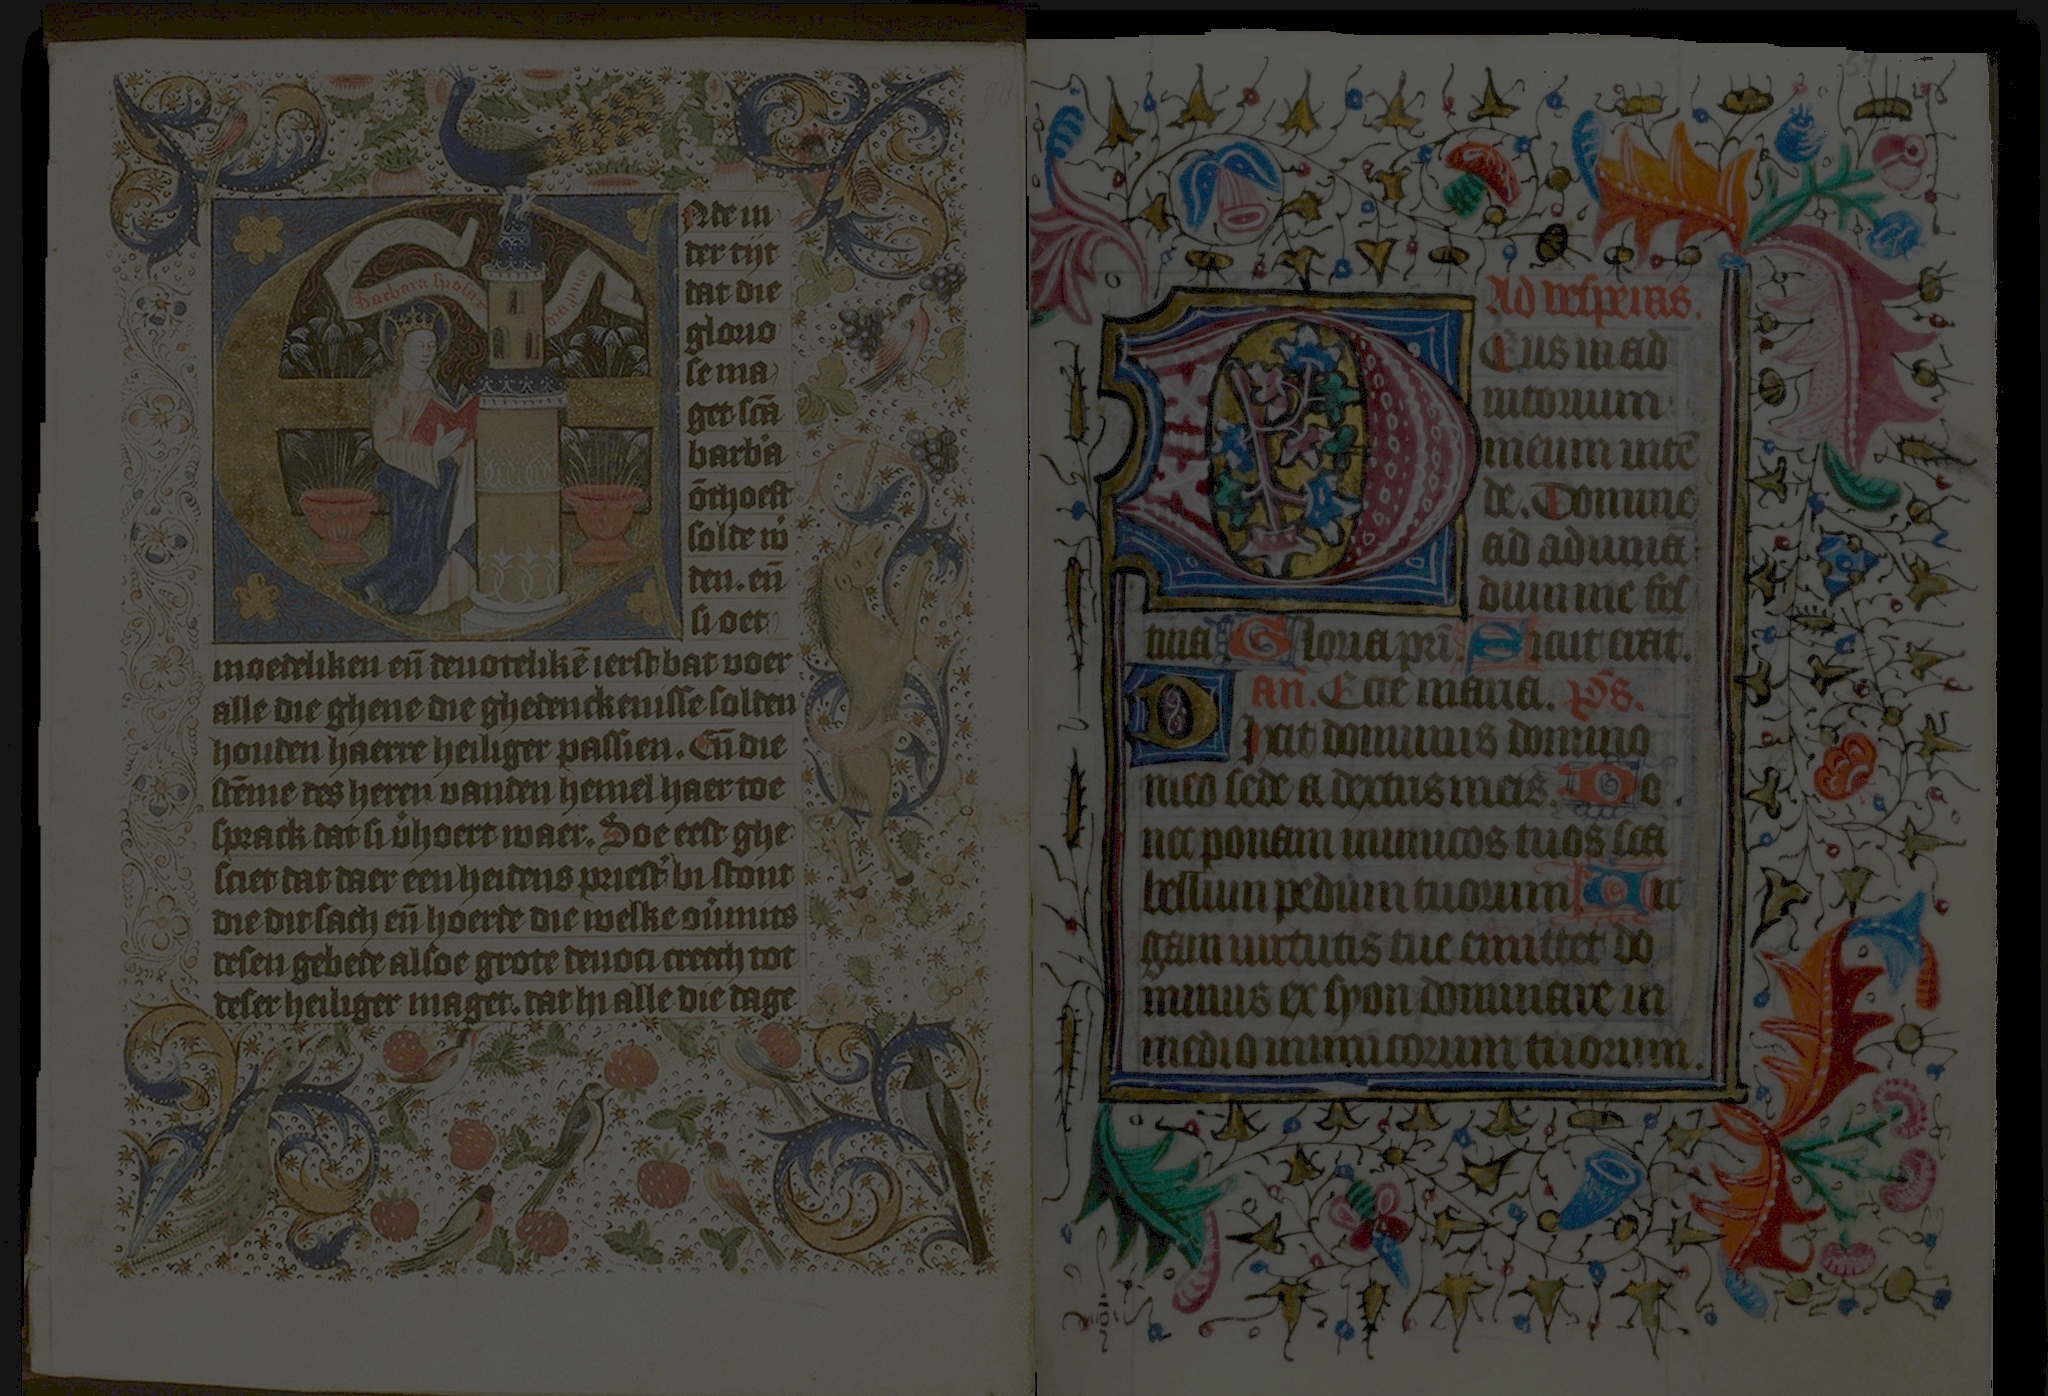 Barbara
Nde in
der tijt
dat die
glorio
se ma
get scā
barba
solde
den. eñ
si oet
moedeliken eñ deuotelikē ierst bat voer
alle die ghene die ghedenckenisse solden
houden haerre heiliger passien. Eñ die
stēme des heren vanden hemel haer toe
sprack dat si v̄hoert waer. Doe eest ghe
sciet dat daer een heidens priest bi stont
die dit sach eñ hoerde die welke
desen gebede alsoe grote deuoci creech tot
deser heiliger maget. dat hi alle die dage
Ad vesperas.
Eus in ad
iutorium
meum intē
de. Domine
ad adiuua
dum me fes
tina Gloria pri Sicut erat.
añ. Ecce maria. p̄s.
Dixit dominus domino
meo sede a dextris meis. Do
nec ponam inimicos tuos sca
bellum pedum tuorum Uir
gam uirtutis tue emittet do
minus ex syon dominare in
medio inimicorum tuorum.